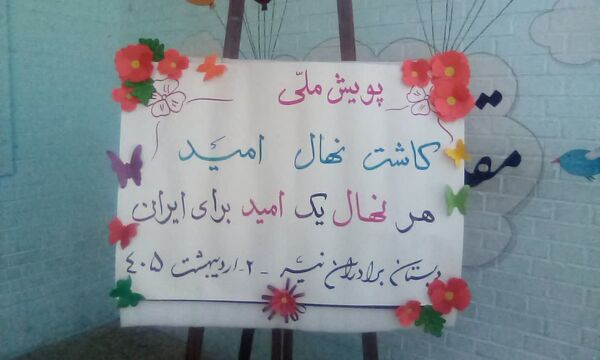 پویش ملّی
کاشت نهال امید
هر نهال یک امید برای ایران
دبستان برادران نیّه - ۲ اردیبهشت ۴۰۵